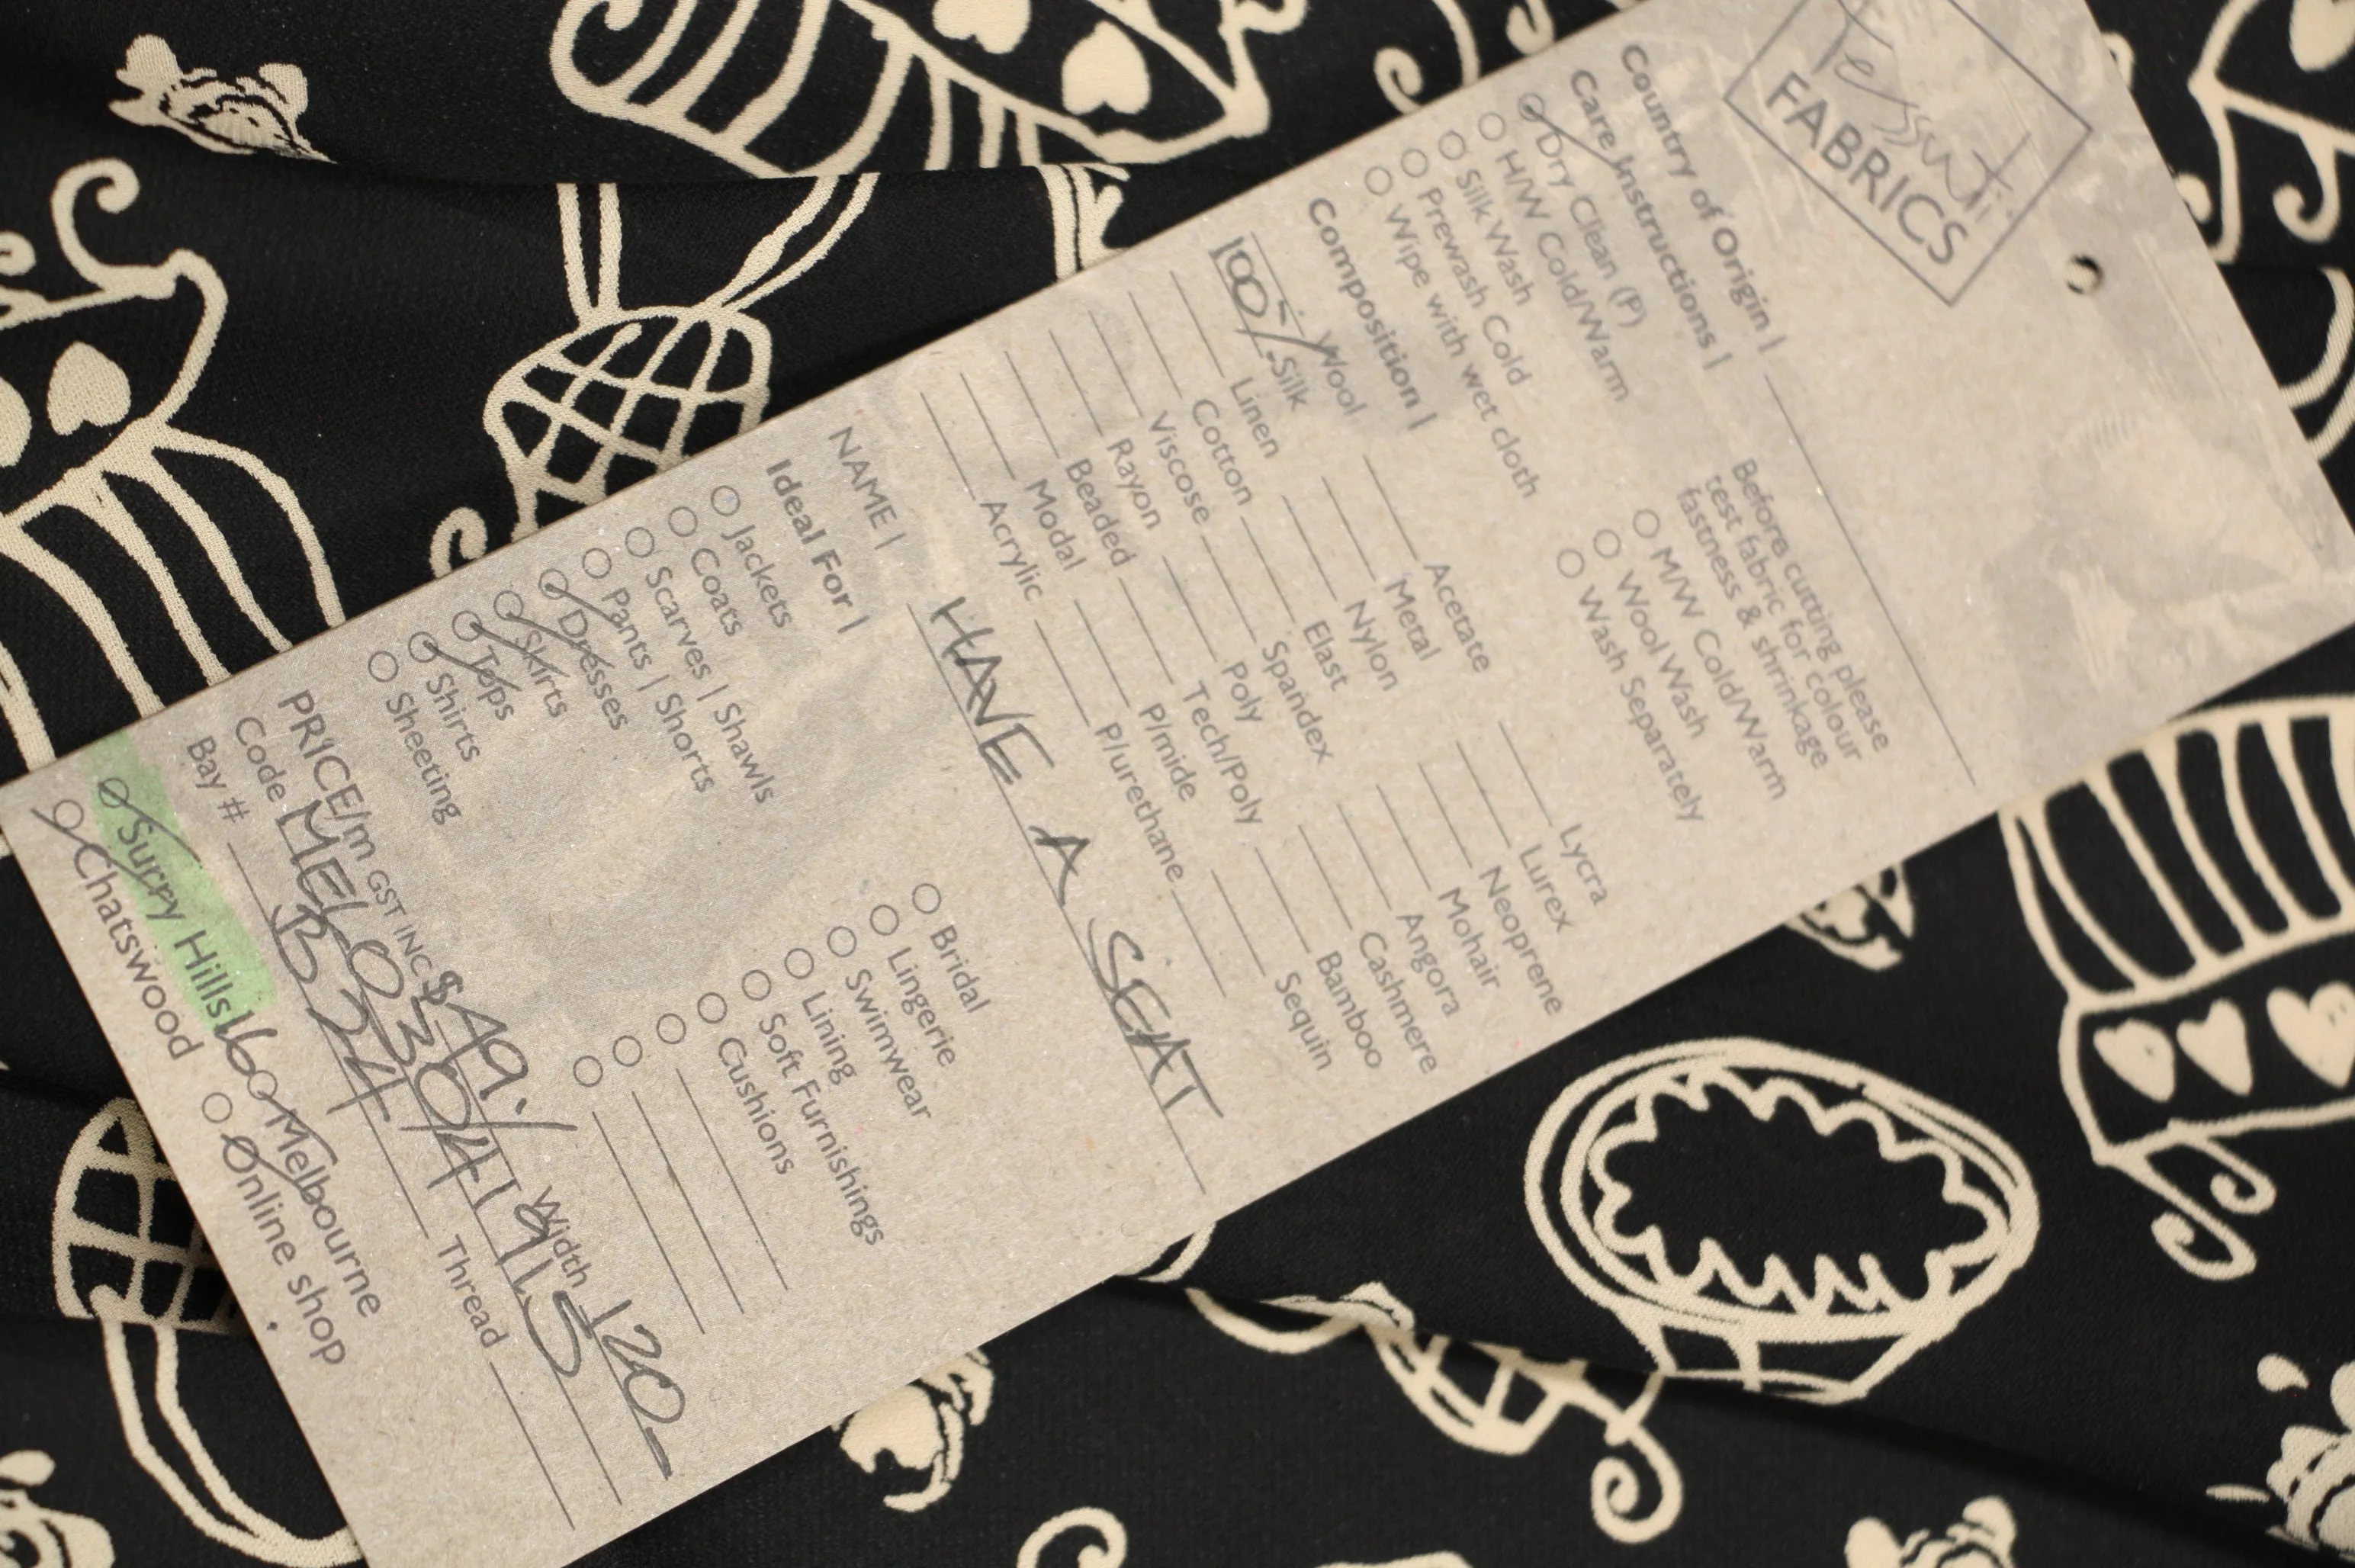 Tessuti
FABRICS
Country of Origin |
Care Instructions |
Dry Clean (P)
H/W Cold/Warm
Silk Wash
Prewash Cold
Wipe with wet cloth
Before cutting please
test fabric for colour
fastness & shrinkage
M/W Cold/Warm
Wool Wash
Wash Separately
Composition |
Wool
100% Silk
Linen
Cotton
Viscose
Rayon
Beaded
Modal
Acrylic
Acetate
Metal
Nylon
Elast
Spandex
Poly
Tech/Poly
P/mide
P/urethane
Lycra
Lurex
Neoprene
Mohair
Angora
Cashmere
Bamboo
Sequin
NAME | HAVE A SEAT
Ideal For |
Jackets
Coats
Scarves | Shawls
Pants | Shorts
Dresses
Skirts
Tops
Shirts
Sheeting
Bridal
Lingerie
Swimwear
Lining
Soft Furnishings
Cushions
PRICE/m GST INC $ Width 120
Code
Bay # B24 Thread
Surry Hills 16 Melbourne
Chatswood Online shop